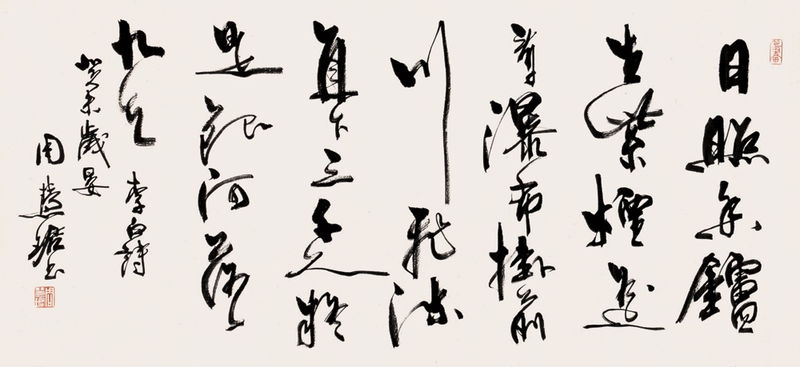 日照香鑪
生紫煙遙
看瀑布掛前
川飛流
直下三千尺疑
是銀河落
九天 李白詩
癸未歲晏
周慧珺書